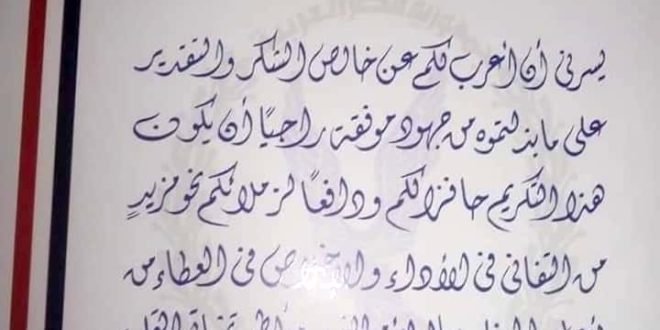 يسرني أن أعرب لكم عن خالص الشكر والتقدير
على ما بذلتموه من جهود موفقة راجيًا أن يكون
هذا التكريم حافزا لكم ودافعًا لزملائكم نحو مزيدٍ
من التفاني في الأداء والإخلاص في العطاء من